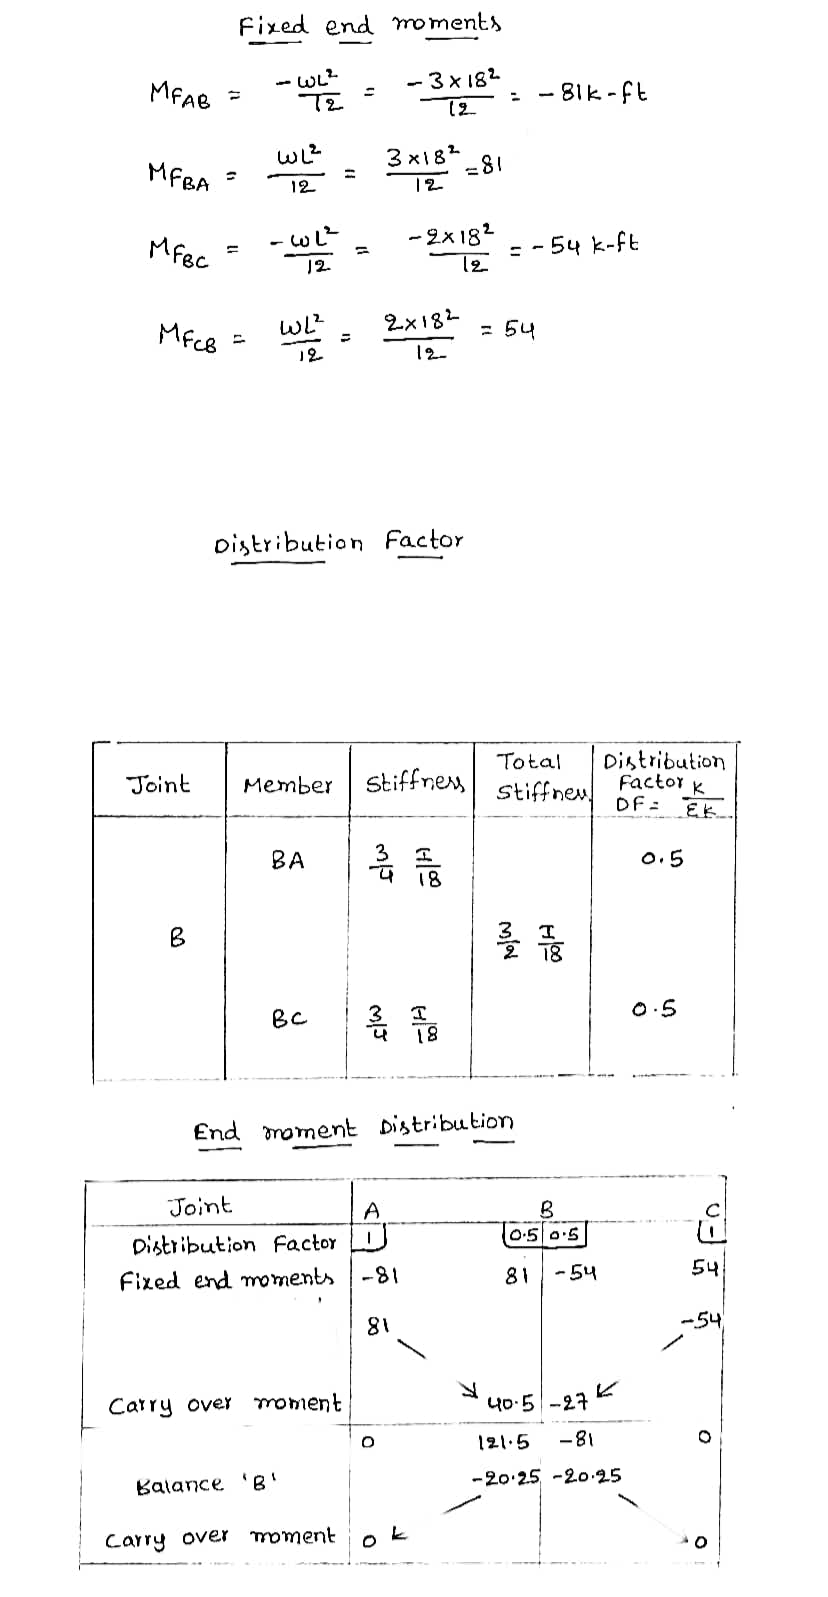 Fixed end moments
MFAB = -WL²/12 = -3×18²/12 = -81k-ft
MFBA = WL²/12 = 3×18²/12 = 81
MFBC = -WL²/12 = -2×18²/12 = -54 k-ft
MFCB = WL²/12 = 2×18²/12 = 54
Distribution Factor
Joint | Member | Stiffness | Total Stiffness | Distribution Factor DF = K/ΣK
BA | 3/4 I/18 | 0.5
B | 3/2 I/18
BC | 3/4 I/18 | 0.5
End moment Distribution
Joint | A | B | C
Distribution Factor | 1 | 0.5 | 0.5 | 1
Fixed end moments | -81 | 81 | -54 | 54
81 | -54
Carry over moment | 40.5 | -27
0 | 121.5 | -81 | 0
Balance 'B' | -20.25 | -20.25
Carry over moment | 0 | 0